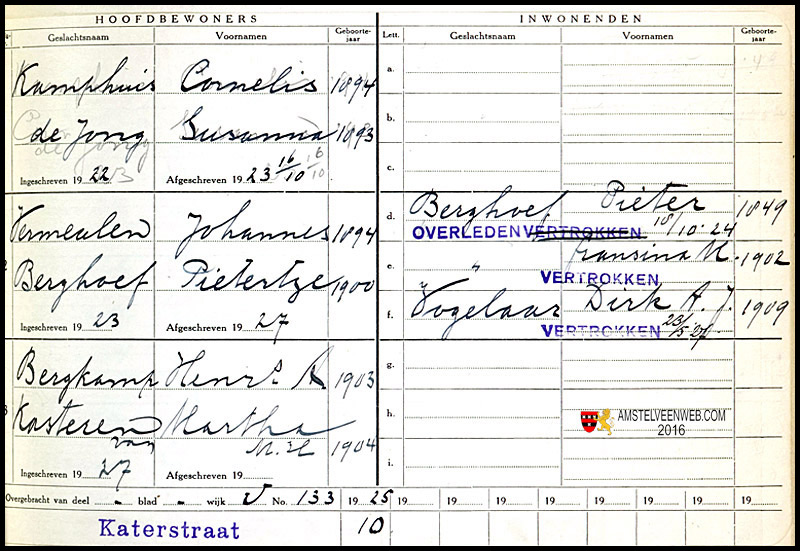 HOOFDBEWONERS
INWONENDEN
Geslachtsnaam Voornamen Geboorte-jaar Lett. Geslachtsnaam Voornamen Geboorte-jaar
Kamphuis Cornelis 1894 a.
de Jong Susanna 1893 b.
de Jong c.
Ingeschreven 19 22 Afgeschreven 19 23 16/10 16/10
Vermeulen Johannes 1894 d. Berghoef Pieter 1849
OVERLEDEN VERTROKKEN 18/10-24
Berghoef Pietertze 1900 e. " Fransina M. 1902
VERTROKKEN
Ingeschreven 19 23 Afgeschreven 19 27 f. Vogelaar Dirk A. J. 1909
VERTROKKEN
Bergkamp Henri A 1903 g.
Kosteren Martha h.
van 1904
Ingeschreven 19 27 Afgeschreven 19 i.
AMSTELVEENWEB.COM
2016
Overgebracht van deel - blad - wijk V No. 133 19 25 19 19 19 19 19 19 19 19
Katerstraat 10